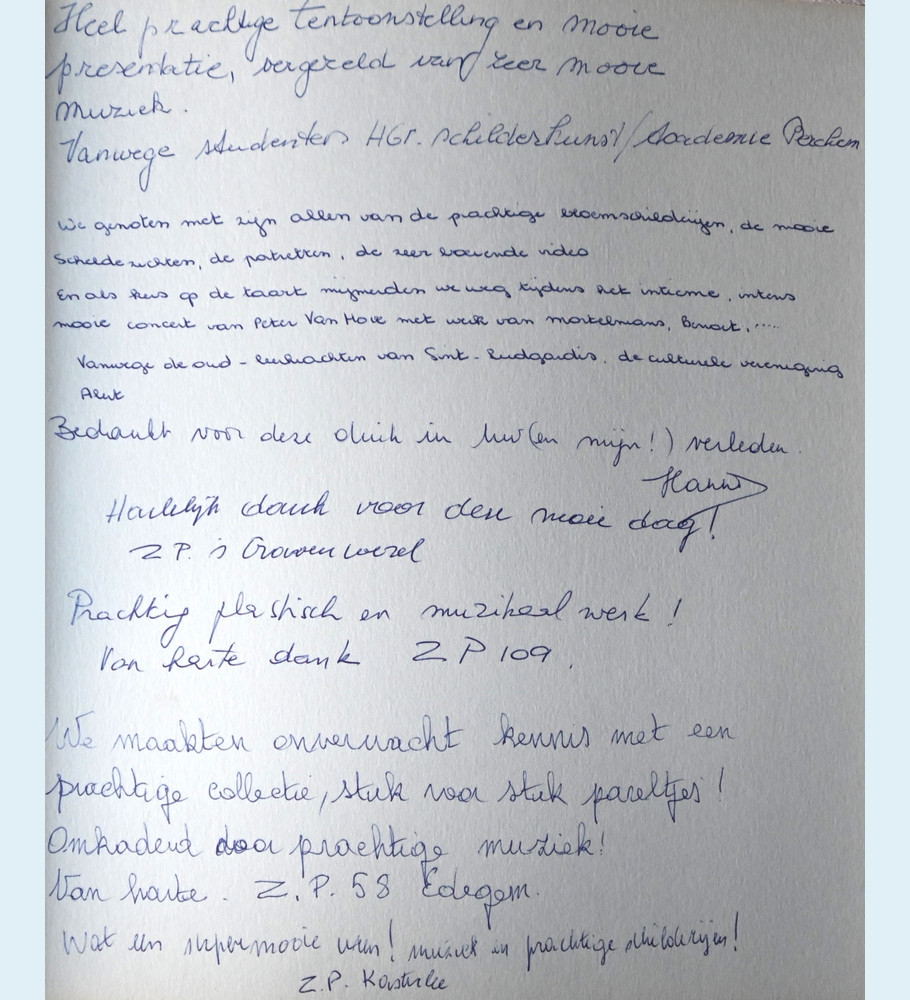 Heel prachtige tentoonstelling en mooie
presentatie, vergezeld van zeer mooie
muziek.
Vanwege studenten HGr. schilderkunst/Academie Berchem
We genoten met zijn allen van de prachtige bloemschilderijen, de mooie
Scheldezichten, de portretten, de zeer boeiende video
En als kers op de taart mijmerden we weg tijdens het intieme, intens
mooie concert van Peter Van Hove met werk van Mortelmans, Benoit, .....
Vanwege de oud-leerkrachten van Sint-Ludgardis, de culturele vereniging
Bedankt voor deze duik in uw (en mijn!) verleden.
Hartelijk dank voor deze mooie dag!
Z P. 's Gravenwezel
Prachtig plastisch en muzikaal werk!
Van harte dank Z P 109.
We maakten onverwacht kennis met een
prachtige collectie, stuk voor stuk pareltjes!
Omkaderd door prachtige muziek!
Van harte. Z.P. 58 Edegem.
Wat een supermooie uren! muziek en prachtige schilderijen!
Z.P. Kasterlee